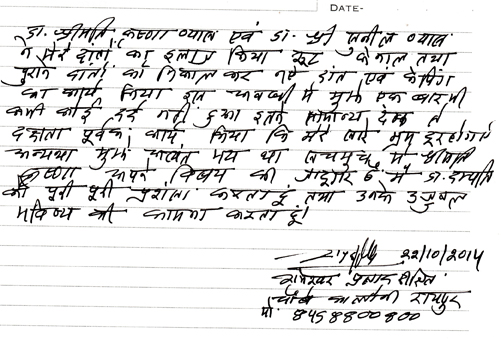 DATE-
डा. श्रीमति कृष्णा व्यास एवं डा. श्री सुनील व्यास
ने मेरे दांतों का इलाज किया रूट केनाल तथा
पुराने दांतों को निकाल कर नए दांत एवं केपिंग
का कार्य किया इस अवधि में मुझे एक बार भी
कभी कोई दर्द नहीं हुआ इतने सामान्य ढंग से
दक्षता पूर्वक कार्य किया कि मेरे सारे भ्रम दूर हो गये
अन्यथा मुझे अत्यंत भय था सचमुच में श्रीमति
कृष्णा अपने विषय की जादूगर है मैं डा. दम्पति
की पूरी पूरी प्रशंसा करता हूं तथा उनके उज्जवल
भविष्य की कामना करता हूं।
22/10/2014
रामेश्वर प्रसाद दीक्षित
चौबे कालोनी रायपुर
मो. 8458800800